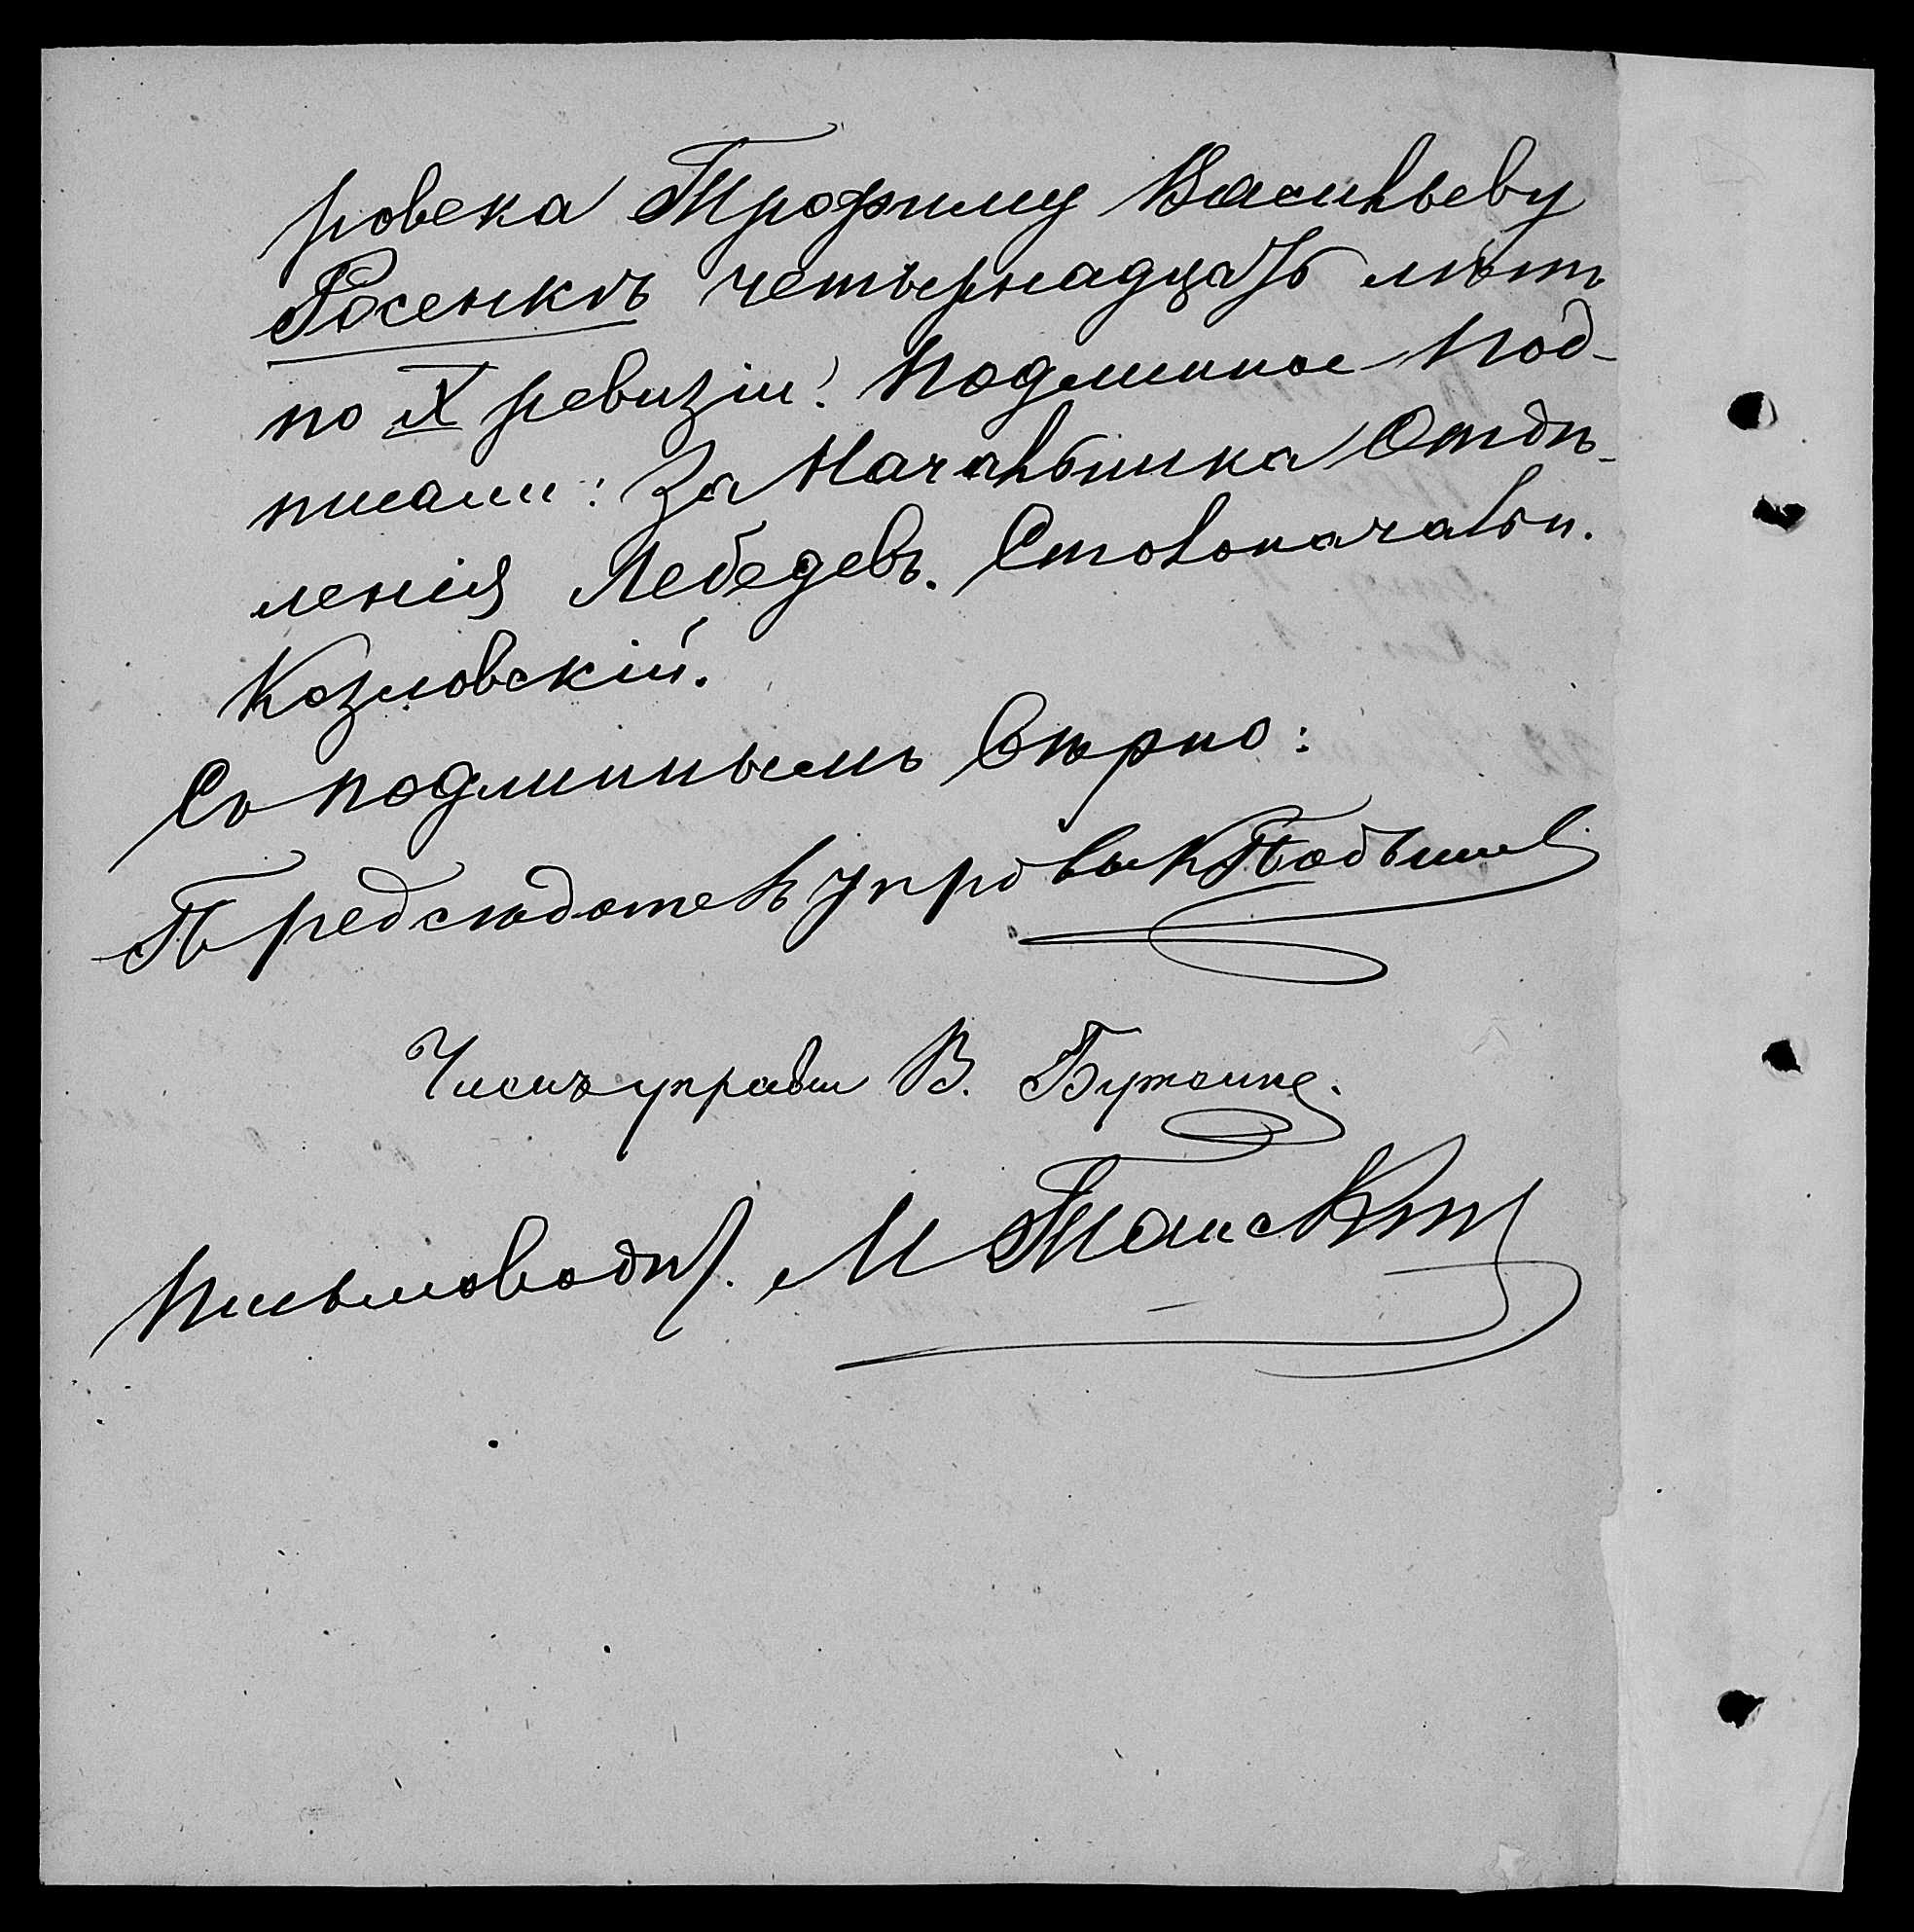 ровска Трофиму Васильеву
Росенкѣ четырнадцать лѣтъ
по X ревизіи. Подлинное под-
писали: За Начальника Отдѣ-
ленія Лебедевъ. Столоначальн.
Козловскій.
Съ подлиннымъ вѣрно:
Предсѣдатель управы К
Членъ управы В.
Письмовод. М